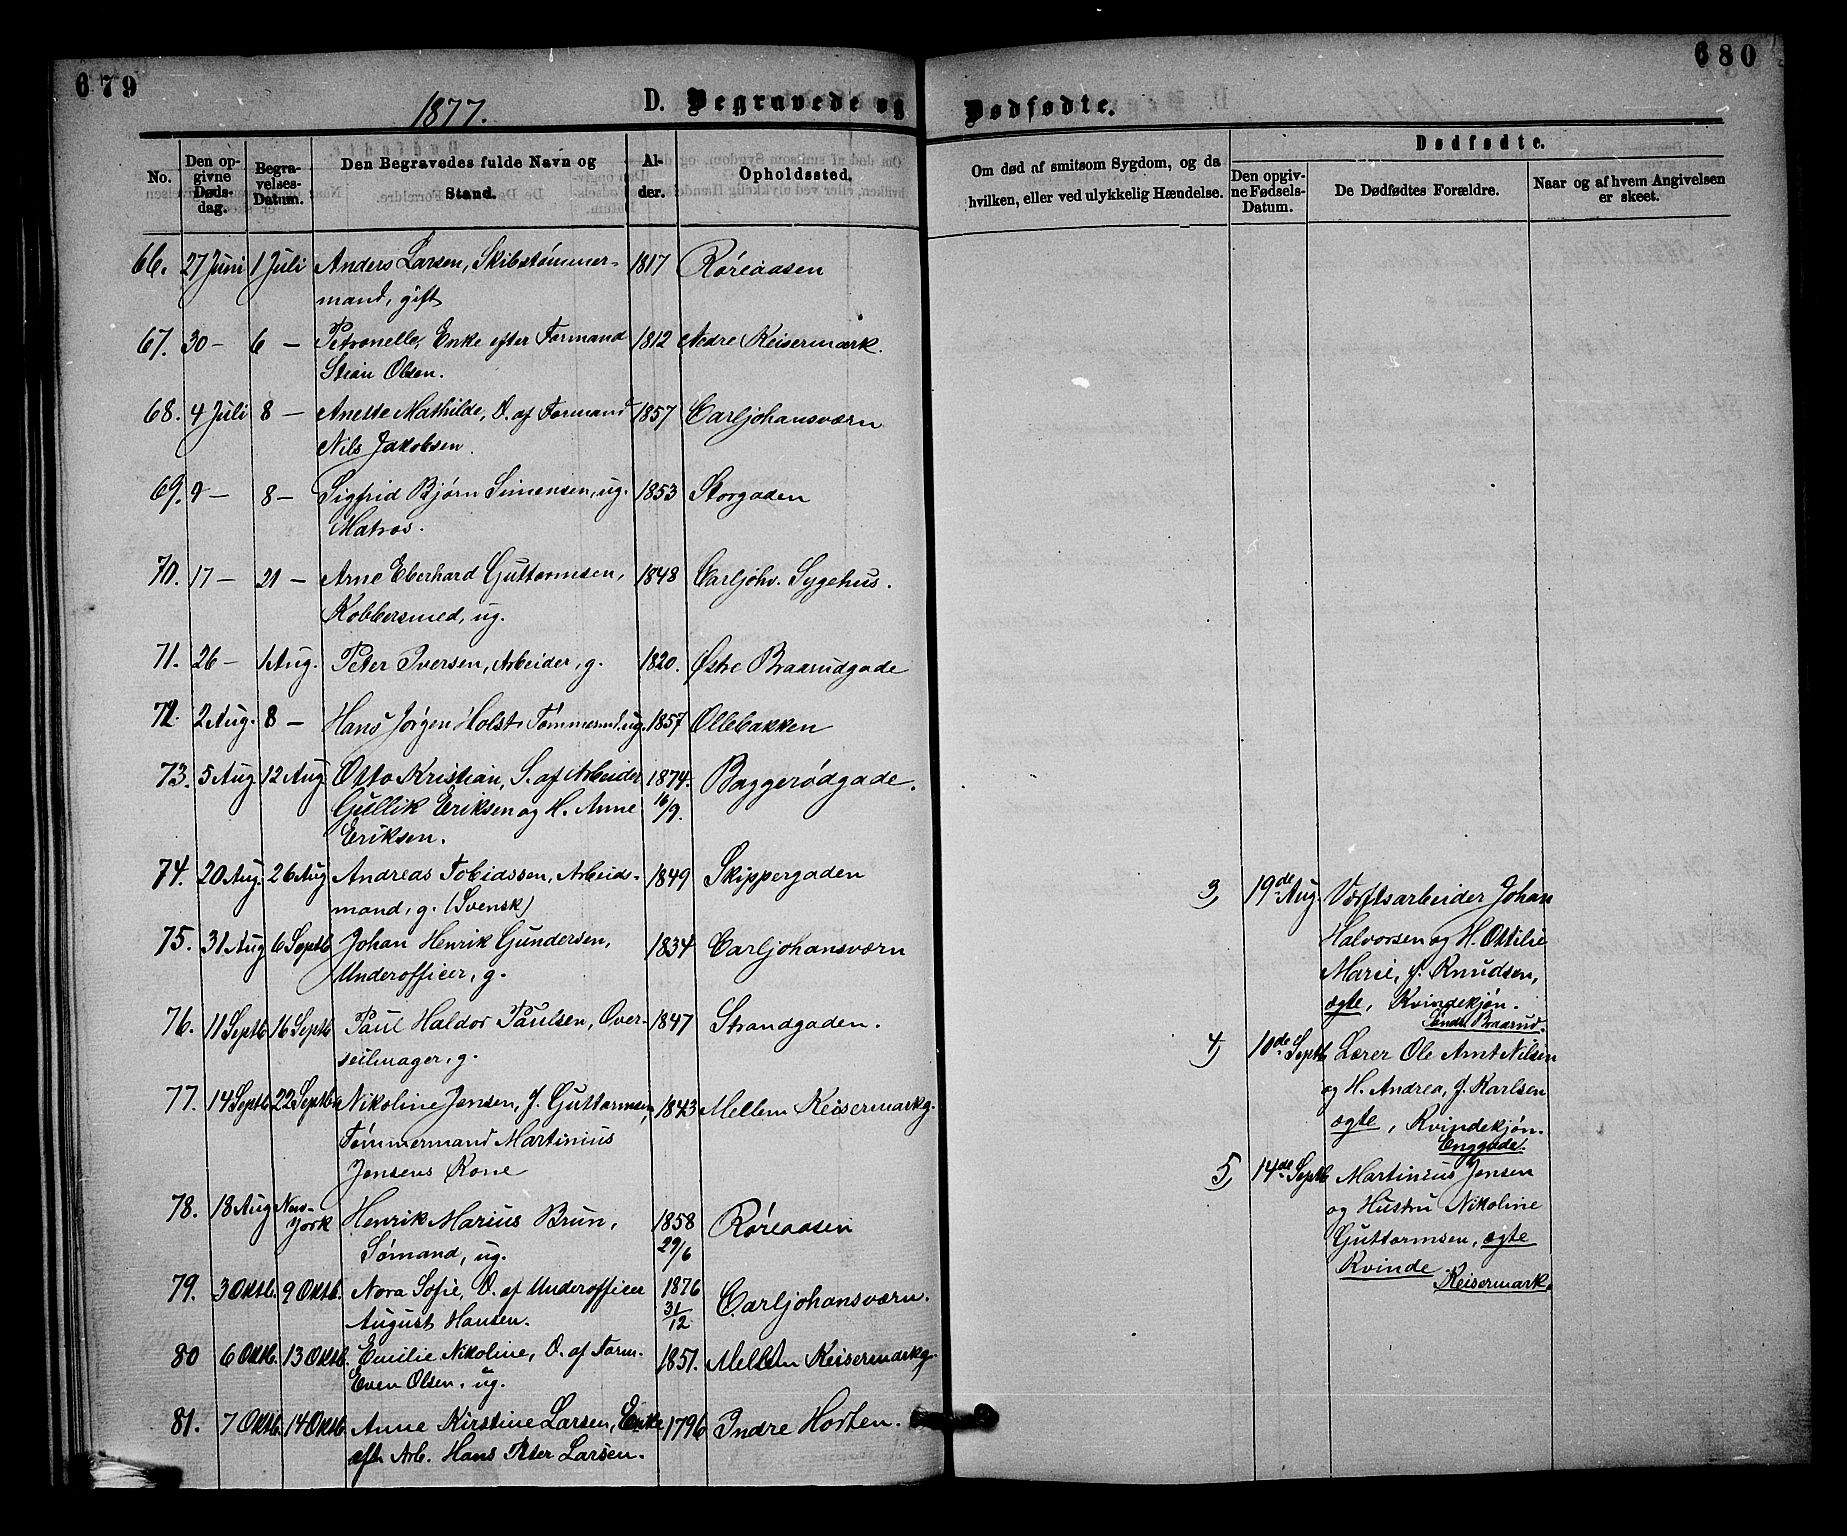 679
1877.
D. Begravede og
No.
Den opgivne Dødsdag.
Begravelses-Datum.
Den Begravedes fulde Navn og Stand.
Alder.
Opholdssted.
66. 27 Juni 1 Juli Anders Larsen, Skibstømmer- 1817 Røreaasen
mand, gift
67. 30 – 6 – Petronelle, Enke efter Formand 1812 Nedre Keisermark.
Stian Olsen.
68. 4 Juli 8 – Anette Mathilde, D. af Formand 1857 Carljohansværn
Nils Jakobsen.
69. 2 – 8 – Sigfrid Bjørn Simensen, ug. 1853 Storgaden
Matros.
70. 17 – 21 – Arne Eberhard Guttormsen, 1848 Carljohv. Sygehus.
Kobbersmed, ug.
71. 26 – 1 Aug. Peter Iversen, Arbeider, g. 1820. Østre Braarudgade
72. 2 Aug. 8 – Hans Jørgen Holst, Tømmermd. ug. 1857 Ollebakken
73. 5 Aug 12 Aug Otto Kristian, S. af Arbeider 1874. Baggerødgade.
Gullik Eriksen og H. Anne 16/9.
Eriksen.
74. 20 Aug. 26 Aug Andreas Tobiassen, Arbeids- 1849 Skippergaden
mand, g. (Svensk)
75. 31 Aug 6 Septb Johan Henrik Gundersen, 1834 Carljohansværn
Underofficer, g.
76. 11 Septb 16 Septb Paul Haldor Paulsen, Over- 1847 Strandgaden.
seilmager, g.
77. 14 Septb. 22 Septb. Nikoline Jensen, f. Guttormsen, 1843 Mellem Keisermarkg.
Tømmermand Martinius
Jensens Kone
78. 18 Aug New-York Henrik Marius Brun, 1858 Røreaasen
Sømand, ug. 29/6
79. 3 Oktb. 9 Oktb. Nora Sofie, D. af Underofficer 1876 Carljohansværn.
August Hansen. 31/12
80 6 Oktb. 13 Oktb. Emilie Nikoline, D. af Form. 1851. Mellem Keisermarkg
Even Olsen, ug.
81. 7 Oktb. 14 Oktb. Anne Kirstine Larsen, Enke 1796 Indre Horten.
eft. Arb. Hans Peter Larsen.
680
Dødfødte.
Om død af smitsom Sygdom, og da
hvilken, eller ved ulykkelig Hændelse.
Dødfødte.
Den opgivne Fødsels-Datum.
De Dødfødtes Forældre.
Naar og af hvem Angivelsen
er skeet.
3, 19de Aug. Værftsarbeider Johan
Halvorsen og H. Ottilie
Marie, f. Knudsen,
ægte, Kvindekjøn.
Søndre Braarud.
4, 10de Septb Lærer Ole Arnt Nilsen
og H. Andrea, f. Karlsen
ægte, Kvindekjøn.
Enggade.
5, 14de Septb Martinius Jensen
og Hustru Nikoline
Guttormsen, ægte
Kvinde.
Keisermark.